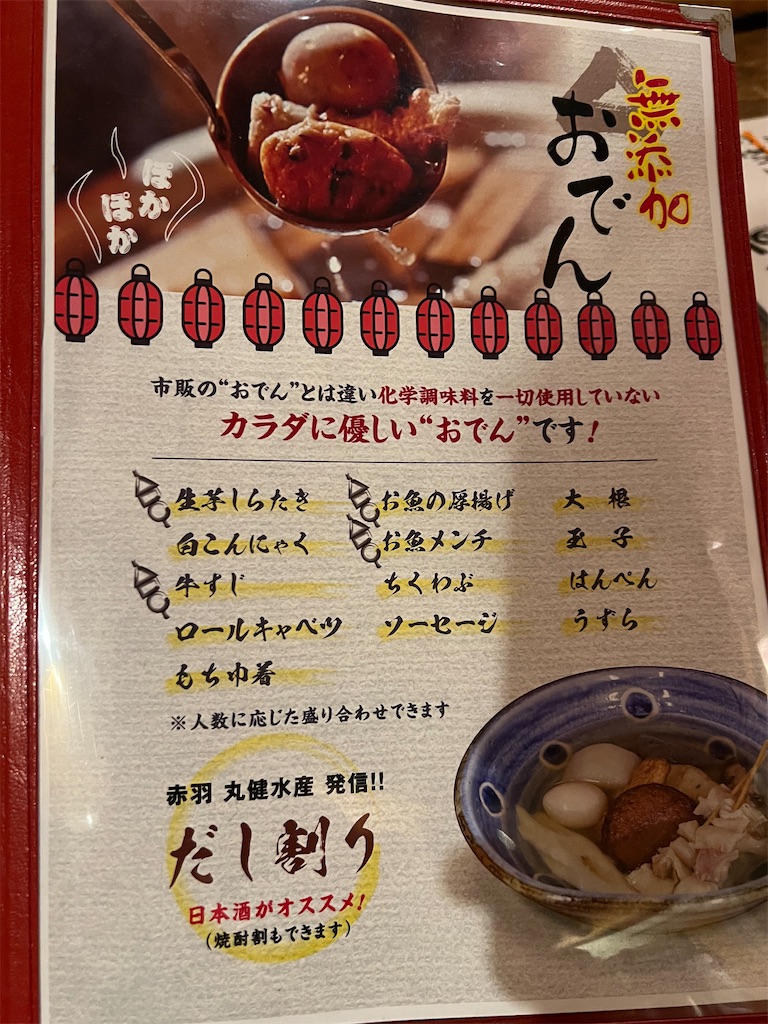 無添加
おでん
ぽかぽか
市販の“おでん”とは違い化学調味料を一切使用していない
カラダに優しい“おでん”です!
生芋しらたき
白こんにゃく
牛すじ
ロールキャベツ
もち巾着
お魚の厚揚げ
お魚メンチ
ちくわぶ
ソーセージ
大根
玉子
はんぺん
うずら
※人数に応じた盛り合わせできます
赤羽 丸健水産 発信!!
だし割り
日本酒がオススメ!
(焼酎割もできます)